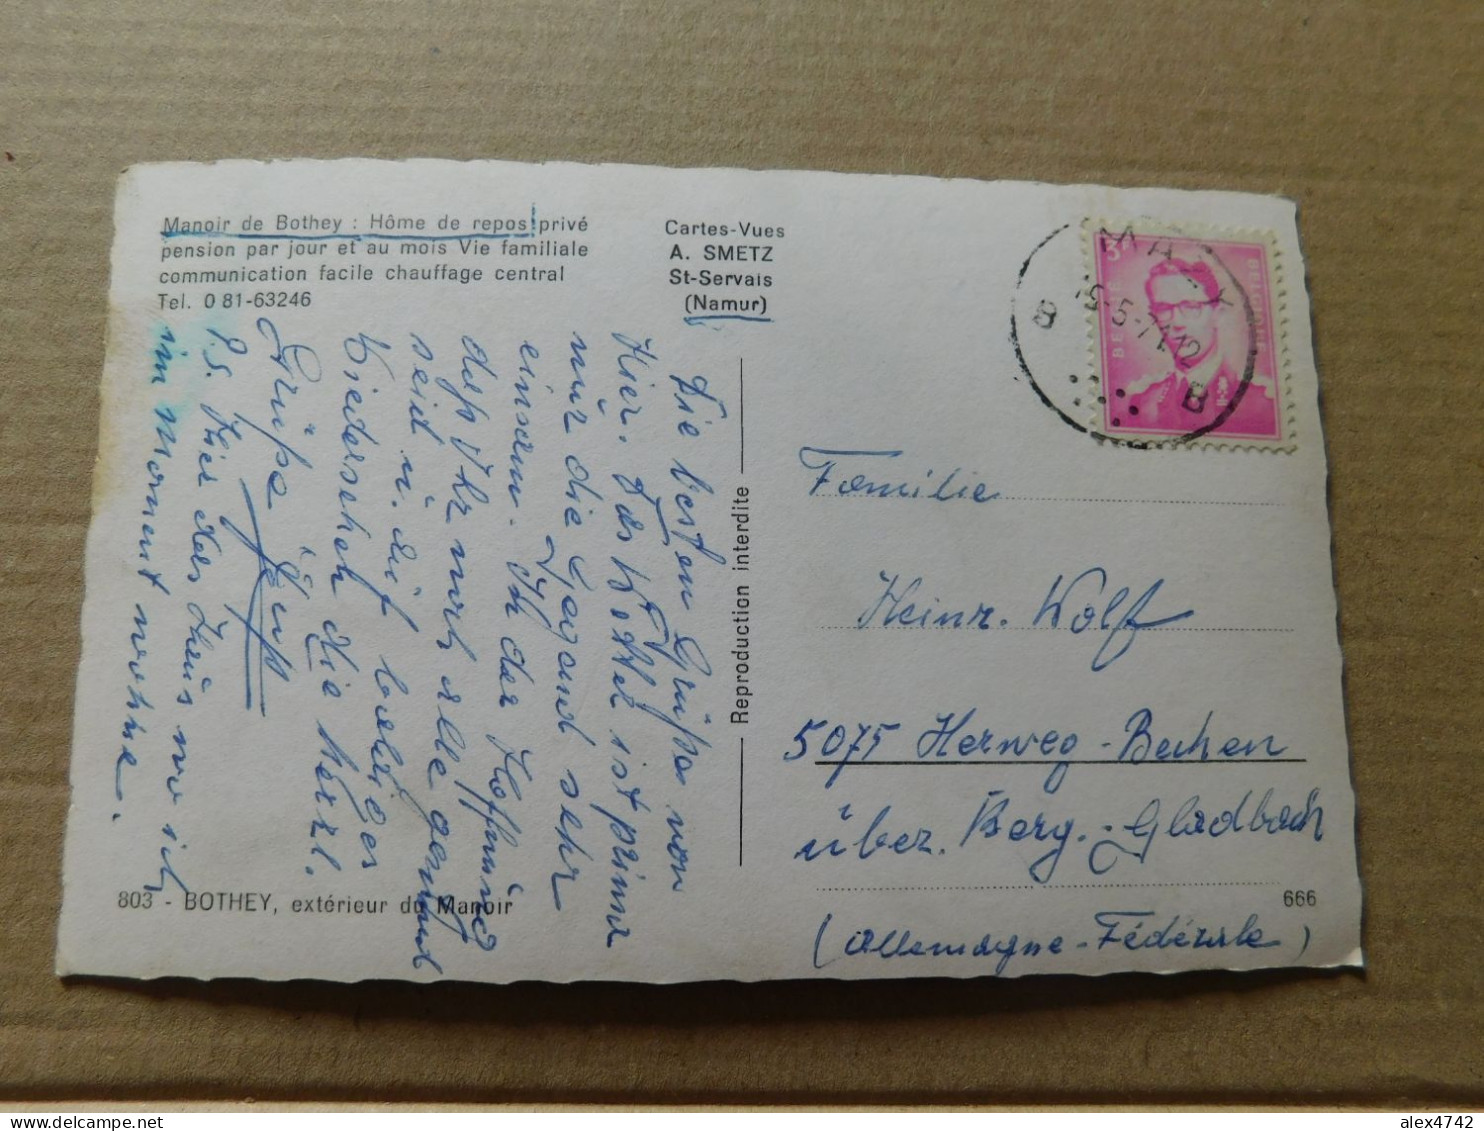 Manoir de Bothey : Hôme de repos privé
pension par jour et au mois Vie familiale
communication facile chauffage central
Tel. 0 81-63246
Cartes-Vues
A. SMETZ
St-Servais
(Namur)
3F
BELGIE
BELGIQUE
MAZY
5-71 12
B B
Die besten Grüße von
Hier. Das Wetter ist prima
nur die Gegend sehr
einsam. In der Hoffnung
daß Ihr noch alle gesund
seid u. auf baldiges
Wiedersehen die herzl.
Grüße
P.S. Hier das Haus wo ich
im Moment wohne.
Reproduction interdite
Familie
Heinr. Wolf
5075 Herweg-Bechen
über. Berg.-Gladbach
(Allemagne-Fédérale)
803 - BOTHEY, extérieur du Manoir
666
delcampe.net
alex4742